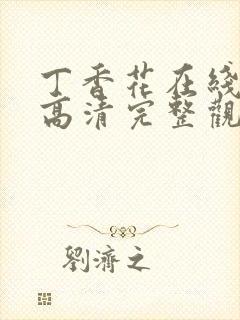 丁香花在綫
高清完整觀
劉濟之